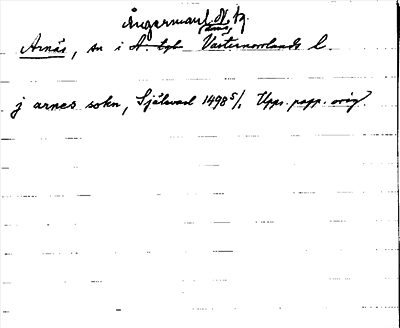 Ångermanl. N. tg.
Arnäs, sn i A. tgl. Västernorrlands l.
j arnes sokn, Själevad 1498 5/1 Upps. papp. orig.